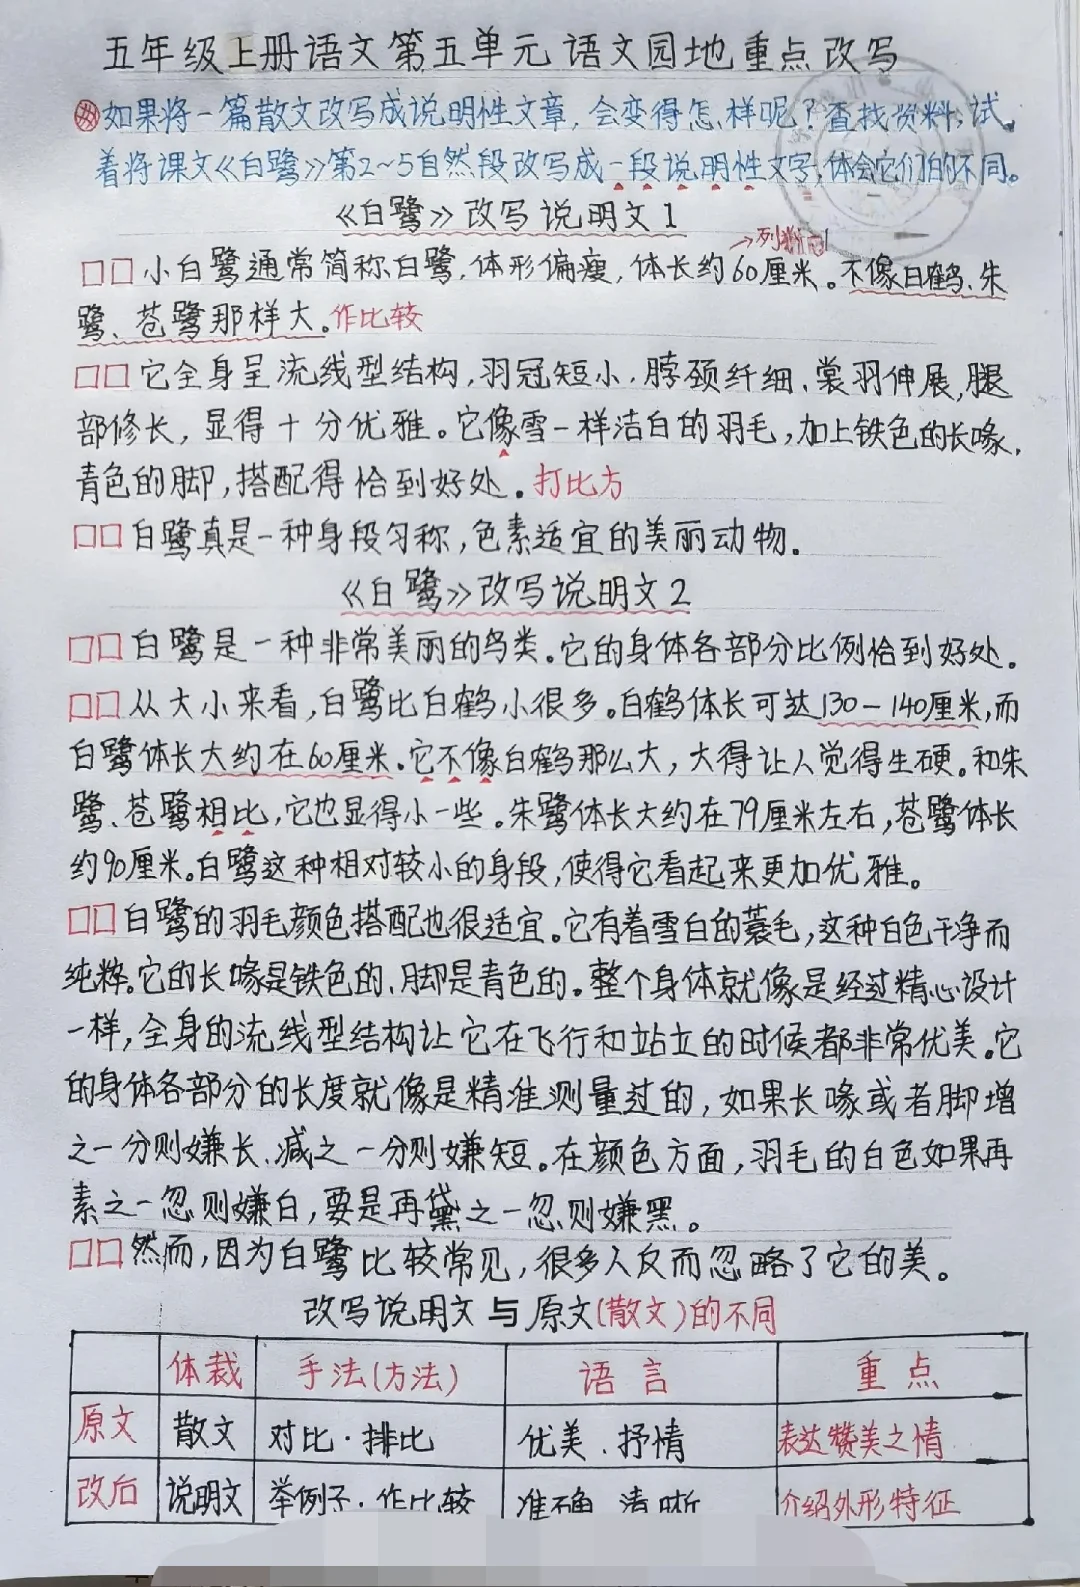 五年级上册语文第五单元语文园地重点改写
如果将一篇散文改写成说明性文章，会变得怎样呢？查找资料，试
着将课文《白鹭》第2~5自然段改写成一段说明性文字，体会它们的不同。
《白鹭》改写说明文1
→列数字
□□小白鹭通常简称白鹭，体形偏瘦，体长约60厘米。不像白鹤、朱
鹭、苍鹭那样大。作比较
□□它全身呈流线型结构，羽冠短小，脖颈纤细、裳羽伸展，腿
部修长，显得十分优雅。它像雪一样洁白的羽毛，加上铁色的长喙，
青色的脚，搭配得恰到好处。打比方
□□白鹭真是一种身段匀称，色素适宜的美丽动物。
《白鹭》改写说明文2
□□白鹭是一种非常美丽的鸟类。它的身体各部分比例恰到好处。
□□从大小来看，白鹭比白鹤小很多。白鹤体长可达130—140厘米，而
白鹭体长大约在60厘米。它不像白鹤那么大，大得让人觉得生硬。和朱
鹭、苍鹭相比，它也显得小一些。朱鹭体长大约在79厘米左右，苍鹭体长
约90厘米。白鹭这种相对较小的身段，使得它看起来更加优雅。
□□白鹭的羽毛颜色搭配也很适宜。它有着雪白的蓑毛，这种白色干净而
纯粹。它的长喙是铁色的，脚是青色的。整个身体就像是经过精心设计
一样，全身的流线型结构让它在飞行和站立的时候都非常优美。它
的身体各部分的长度就像是精准测量过的，如果长喙或者脚增
之一分则嫌长，减之一分则嫌短。在颜色方面，羽毛的白色如果再
素之一忽则嫌白，要是再黛之一忽则嫌黑。
□□然而，因为白鹭比较常见，很多人反而忽略了它的美。
改写说明文与原文(散文)的不同
体裁 手法(方法) 语言 重点
原文 散文 对比·排比 优美、抒情 表达赞美之情
改后 说明文 举例子·作比较 准确 清晰 介绍外形特征